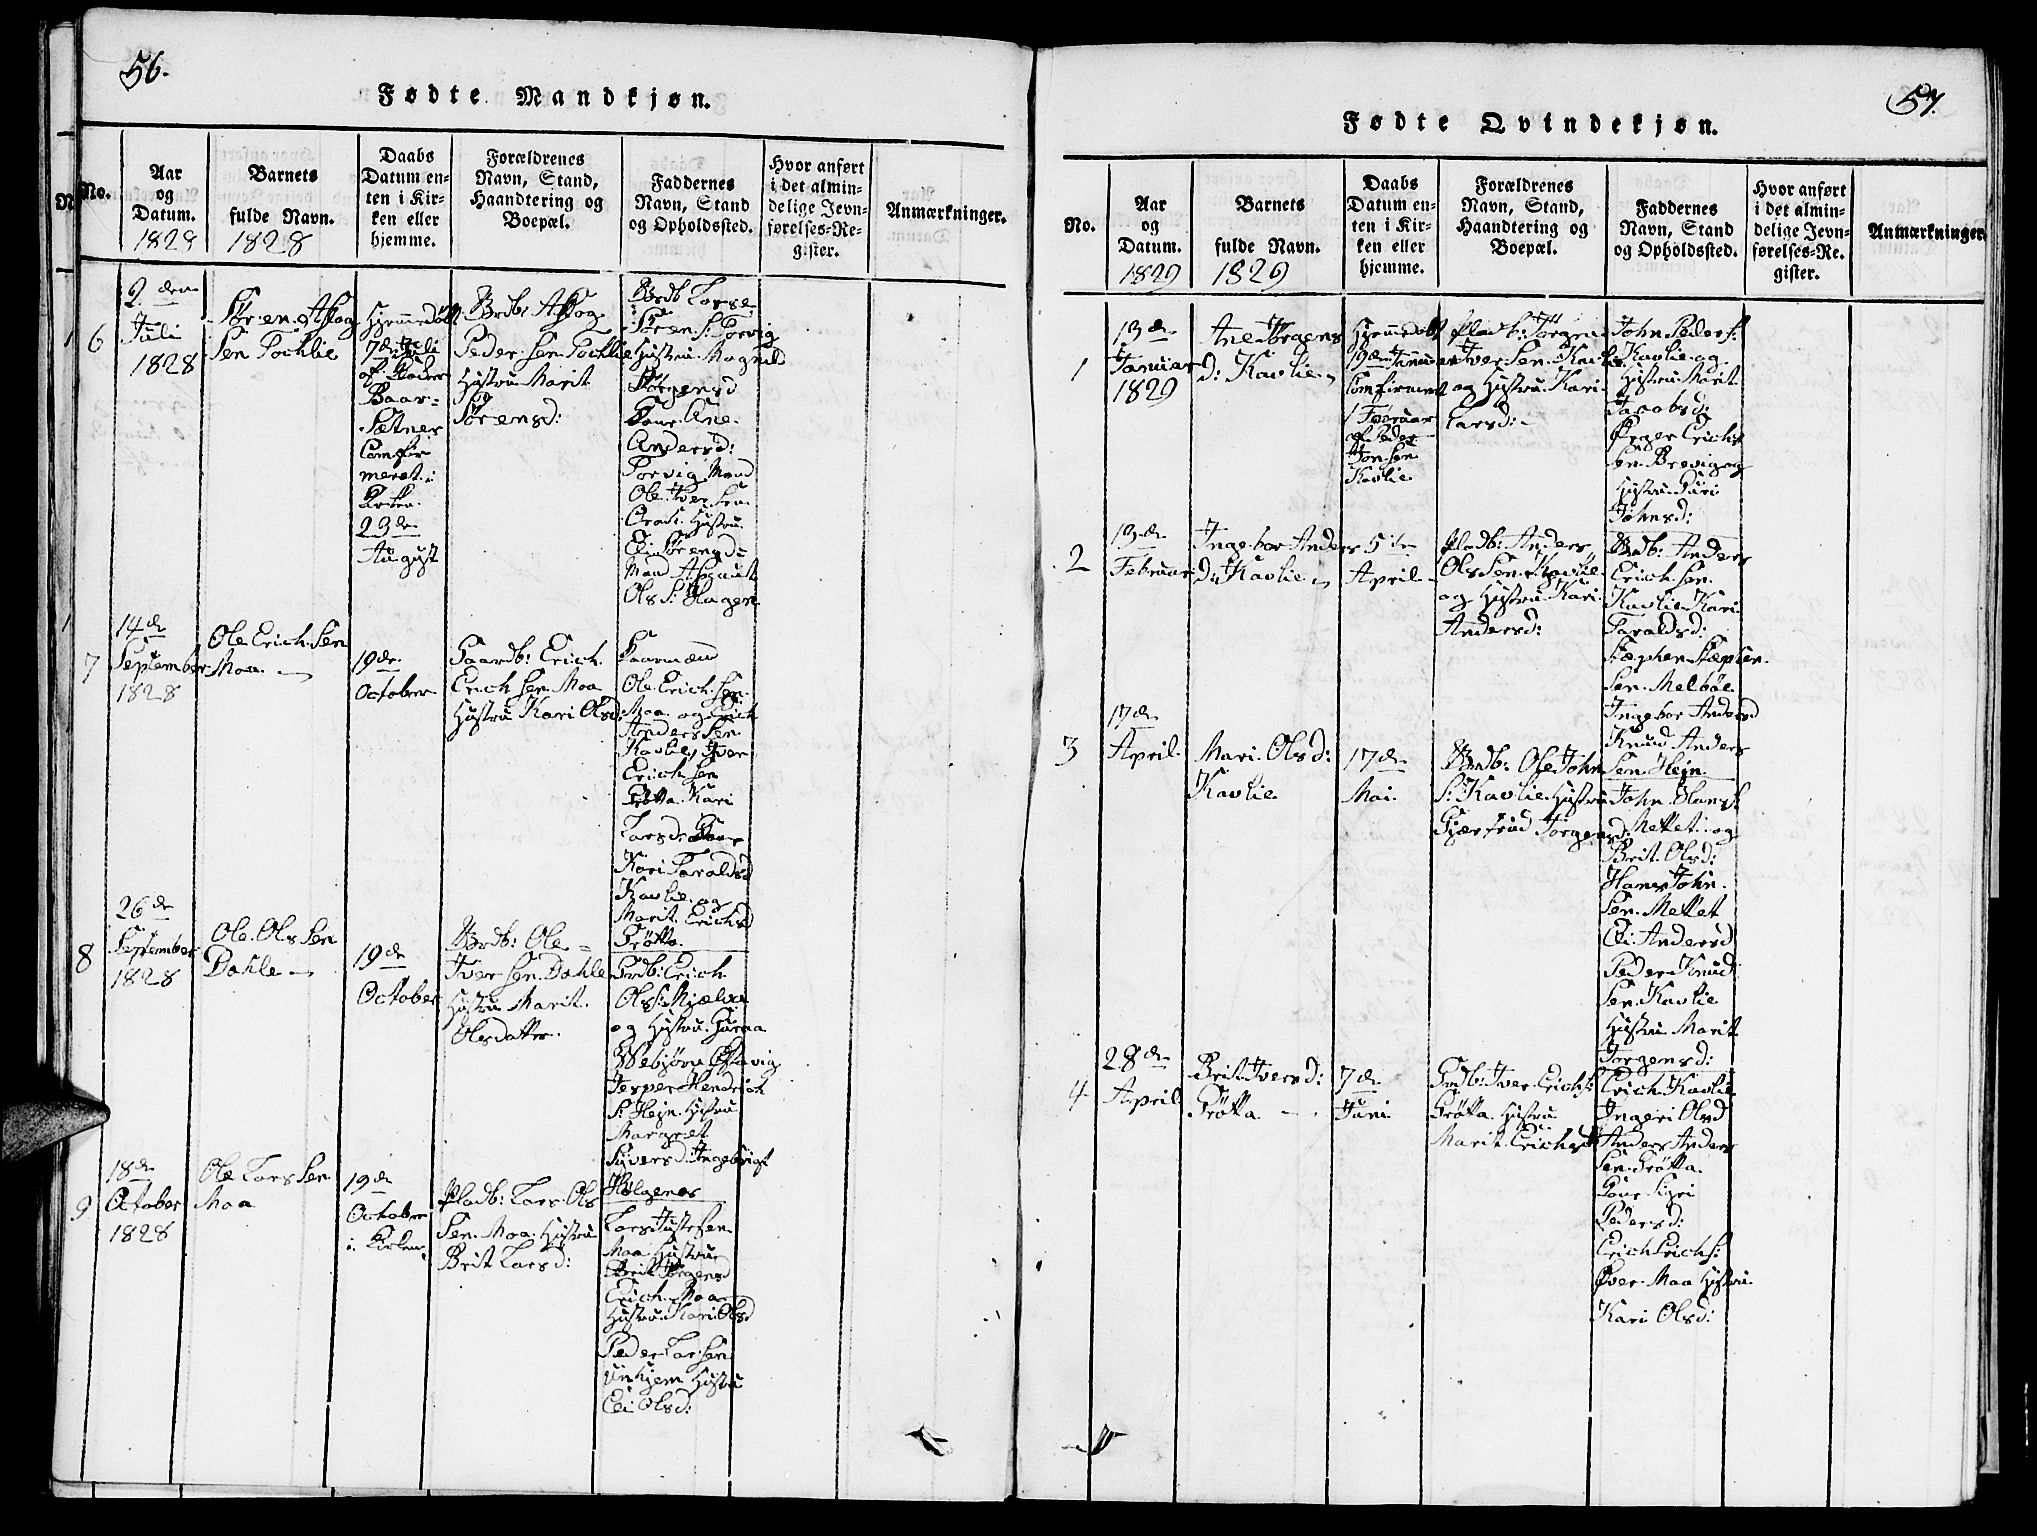 56.
Fødte Mandkjøn.
No.
Aar
og
Datum.
1828
Barnets
fulde Navn.
1828
Daabs
Datum en-
ten i Kir-
ken eller
hjemme.
Forældrenes
Navn, Stand,
Haandtering og
Boepæl.
Faddernes
Navn, Stand
og Opholdssted.
Hvor anført
i det almin-
delige Jevn-
førelses-Re-
gister.
Anmærkninger.
6
2den
Juli
1828
Sören
Sen
Hjemmedöbt
7de Juli
af
Baar-
Sætnes
Comfir
meret i
Kirken
23de
August
Peder Sen
Hustru Marit
Sörensd:
Sören S: Torvig
Hustru Magnild
Ane
Andersd:
Torvig Mand
Ole Iver Sen
Hustru
Mand
Ols S:
7
14de
September
1828
Ole Erich Sen
Moa
19de
October
Gaardb: Erich
Erich Sen Moa
Hustru Kari Olsd:
Ole Erich Sen
Moa og Erich
Anders Sen
Kavlie, Iver
Erich Sen
Grötta Kari
Larsd
Kari Taraldsd
Kavlie og
Marit Erichsd
Grötta
8
26de
September
1828
Ole Ols Sen
Dahle
19de
October
Ole
Iver Sen Dahle
Hustru Marit
Olsdatter
Grdb: Erich
Ols S: Mjælva
og Hustru
Jesper Hendrich
S: Hejn Hustru
Margret
Syversd: Ingebrigt
9
18de
October
1828
Ole Lars Sen
Moa
19de
October
i Kirken
Pladb: Lars Ols
Sen Moa Hustru
Brit Larsd:
Lars
Moa Hustru
Brit Jörgensd
Erich Moa
Hustru Kari Olsd
Peder Lar Sen
Hustru
Eli Olsd:
57.
Fødte Qvindekjøn.
No.
Aar
og
Datum.
1829
Barnets
fulde Navn.
1829
Daabs
Datum en-
ten i Kir-
ken eller
hjemme.
Forældrenes
Navn, Stand,
Haandtering og
Boepæl.
Faddernes
Navn, Stand
og Opholdssted.
Hvor anført
i det almin-
delige Jevn-
førelses-Re-
gister.
Anmærkninger.
1
13de
Januar
1829
Ane Jörgens
d: Kavlie
Hjemmedöbt
19de Januar
Comfirmert
1 Februar
af Peder
Jon Sen
Kavlie
Pladb: Jörgen
Iver Sen Kavlie
og Hustru Kari
Larsd:
John Peders:
Kavlie og
Hustru Marit
Jacobsd:
Erich
Sen Brevig og
Hustru Guri
Johnsd:
2
13de
Februar
Ingebor Anders
D: Kavlie
5te
April
Pladb: Anders
Ols Sen Kavlie
og Hustru Kari
Andersd:
Anders
Erich Sen
Kavlie Kari
Taraldsd:
Stephen Stephen
Sen Melböe
Ingebor Andersd
Knud Anders
Sen Hejn
3
17de
April
Mari Olsd:
Kavlie
17de
Mai
Ole John
S: Kavlie Hustru
Gjærtrud Jörgensd:
John Hans S:
Mettet og
Brit Olsd:
Hans John
Sen Mettet
Eli Andersd
Peder Knud
Sen Kavlie
Hustru Marit
Jörgensd:
4
28de
April
Brit Iversd:
Grötta
7de
Juni
Grdb: Iver Erichs:
Grötta Hustru
Marit Erichsd
Erich Kavlie
Ingeri Olsd
Anders Anders
Sen Grötta
Sigri
Pedersd:
Erich Erichs:
Över Moa Hustru
Kari Olsd: